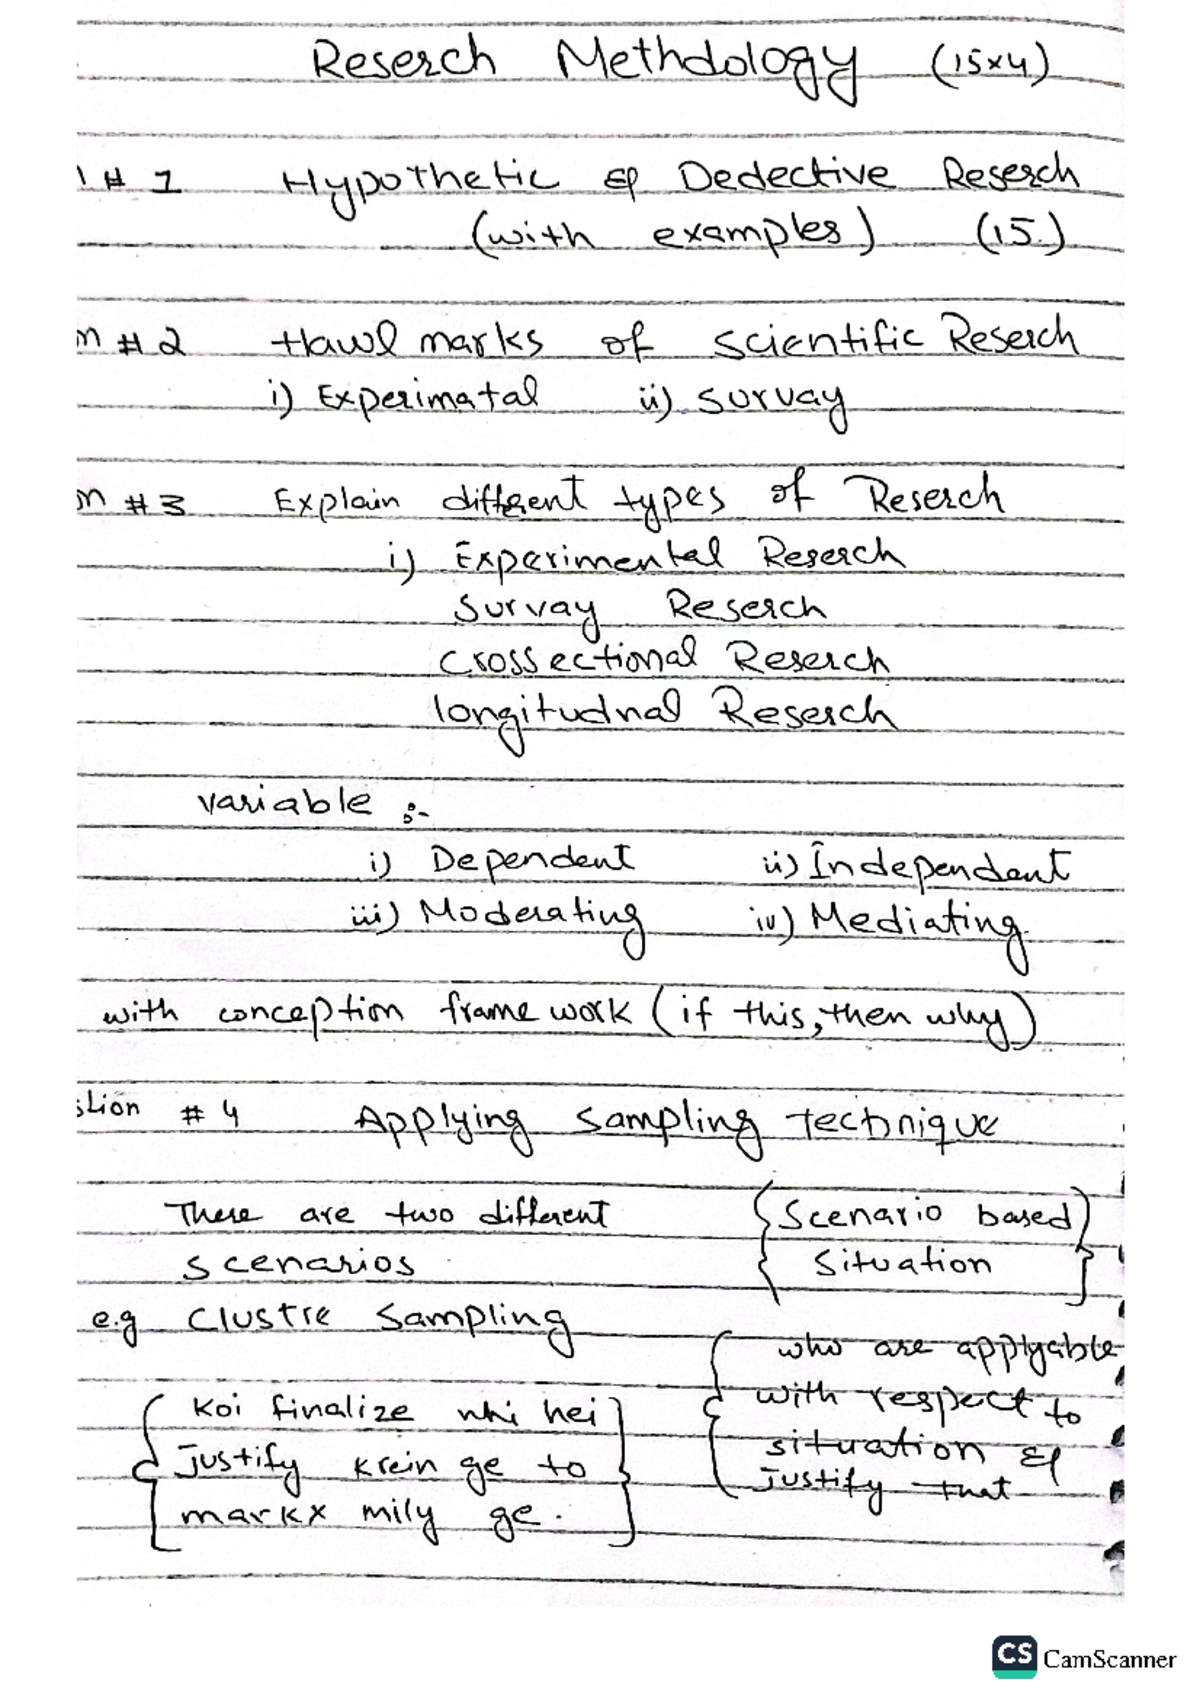 Reserch Methdology (15x4)
# 1 Hypothetic & Dedective Reserch
(with examples) (15.)
n # 2 Hawl marks of scientific Reserch
i) Experimatal ii) survay
n # 3 Explain different types of Reserch
i) Experimental Reserch
Survay Reserch
Crossectional Reserch
longitudnal Reserch
variable :-
i) Dependent ii) Independent
iii) Moderating iv) Mediating
with conception frame work (if this, then why)
stion # 4 Applying sampling technique
There are two different
scenarios
{Scenario based
Situation}
e.g Clustre Sampling
{who are applyable
with respect to
situration &
justify that
{Koi finalize nhi hei
justify krein ge to
markx mily ge.}
CS CamScanner